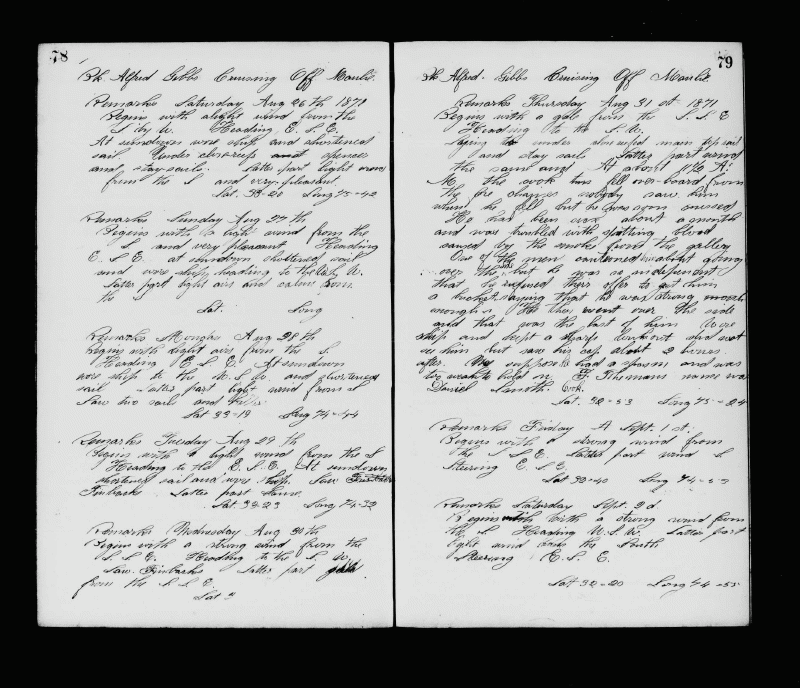 78
Sh. Alfred Gibbs Cruising Off Maule.
Remarks Saturday Aug 26 th 1871
Begins with a light wind from the
S. by W. Heading E. S. E.
At sundown wore ship and shortened
sail Under close reef and spencer
and stay sails. Latter part light
from the S and very pleasant.
Lat. Long 75-42
Remarks Sunday Aug 27 th
Begins with a light wind from the
S. and very pleasant. Heading
E. S. E. at sundown shortened sail
and wore ship heading to the W.
Latter part light airs and calms from
the
Lat. Long
Remarks Monday Aug 28 th
Begins with light airs from the S.
Heading E. S. E. At sundown
wore ship to the W. S. W. and shortened
sail Latter part light wind from S
Saw two sails and
Lat 33-19 Long 74-44
Remarks Tuesday Aug 29 th
Begins with a light wind from the S
Heading to the E. S. E. At sundown
shortened sail and wore ship. Saw
Finbacks Latter part same.
Lat. 33-23 Long 74-32
Remarks Wednesday Aug 30 th
Begins with a strong wind from the
S. S. E. Heading to the S. W.
Saw Finbacks Latter part
from the S. S. E.
Lat
79
Sh. Alfred. Gibbs Cruising Off Maule.
Remarks Thursday Aug 31 st 1871
Begins with a gale from the S. S. E
Heading to the S. W.
Laying under close reefed main top sail
and stay sails Latter part wind
the same and At about A.
M. the cook fell over-board from
the fore chanes nobody saw him
when he fell but he was soon missed
He has been sick about a month
and was troubled with spitting blood
caused by the smoke from the galley
One of the men cautioned him about going
over the side but he was so independent
that he refused their offer to get him
a bucket saying that he was strong
enough. He then went over the side
and that was the last of him Wore
ship and kept a sharp lookout did not
see him but saw his cap about 2 times.
after. We suppose he had a spasm and was
too weak to hold on. The mans name was
Daniel Smith. Cook.
Lat. 32-53 Long 75-24
Remarks Friday Sept. 1 st.
Begins with a strong wind from
the S. S. E. Latter part wind S.
Steering E. S. E
Lat 32-40 Long 74-
Remarks Saturday Sept. 2 d.
Begins with a strong wind from
the S. Heading W. S. W. Latter part
light wind from the South
Steering E. S. E.
Lat 32-20 Long 74-55